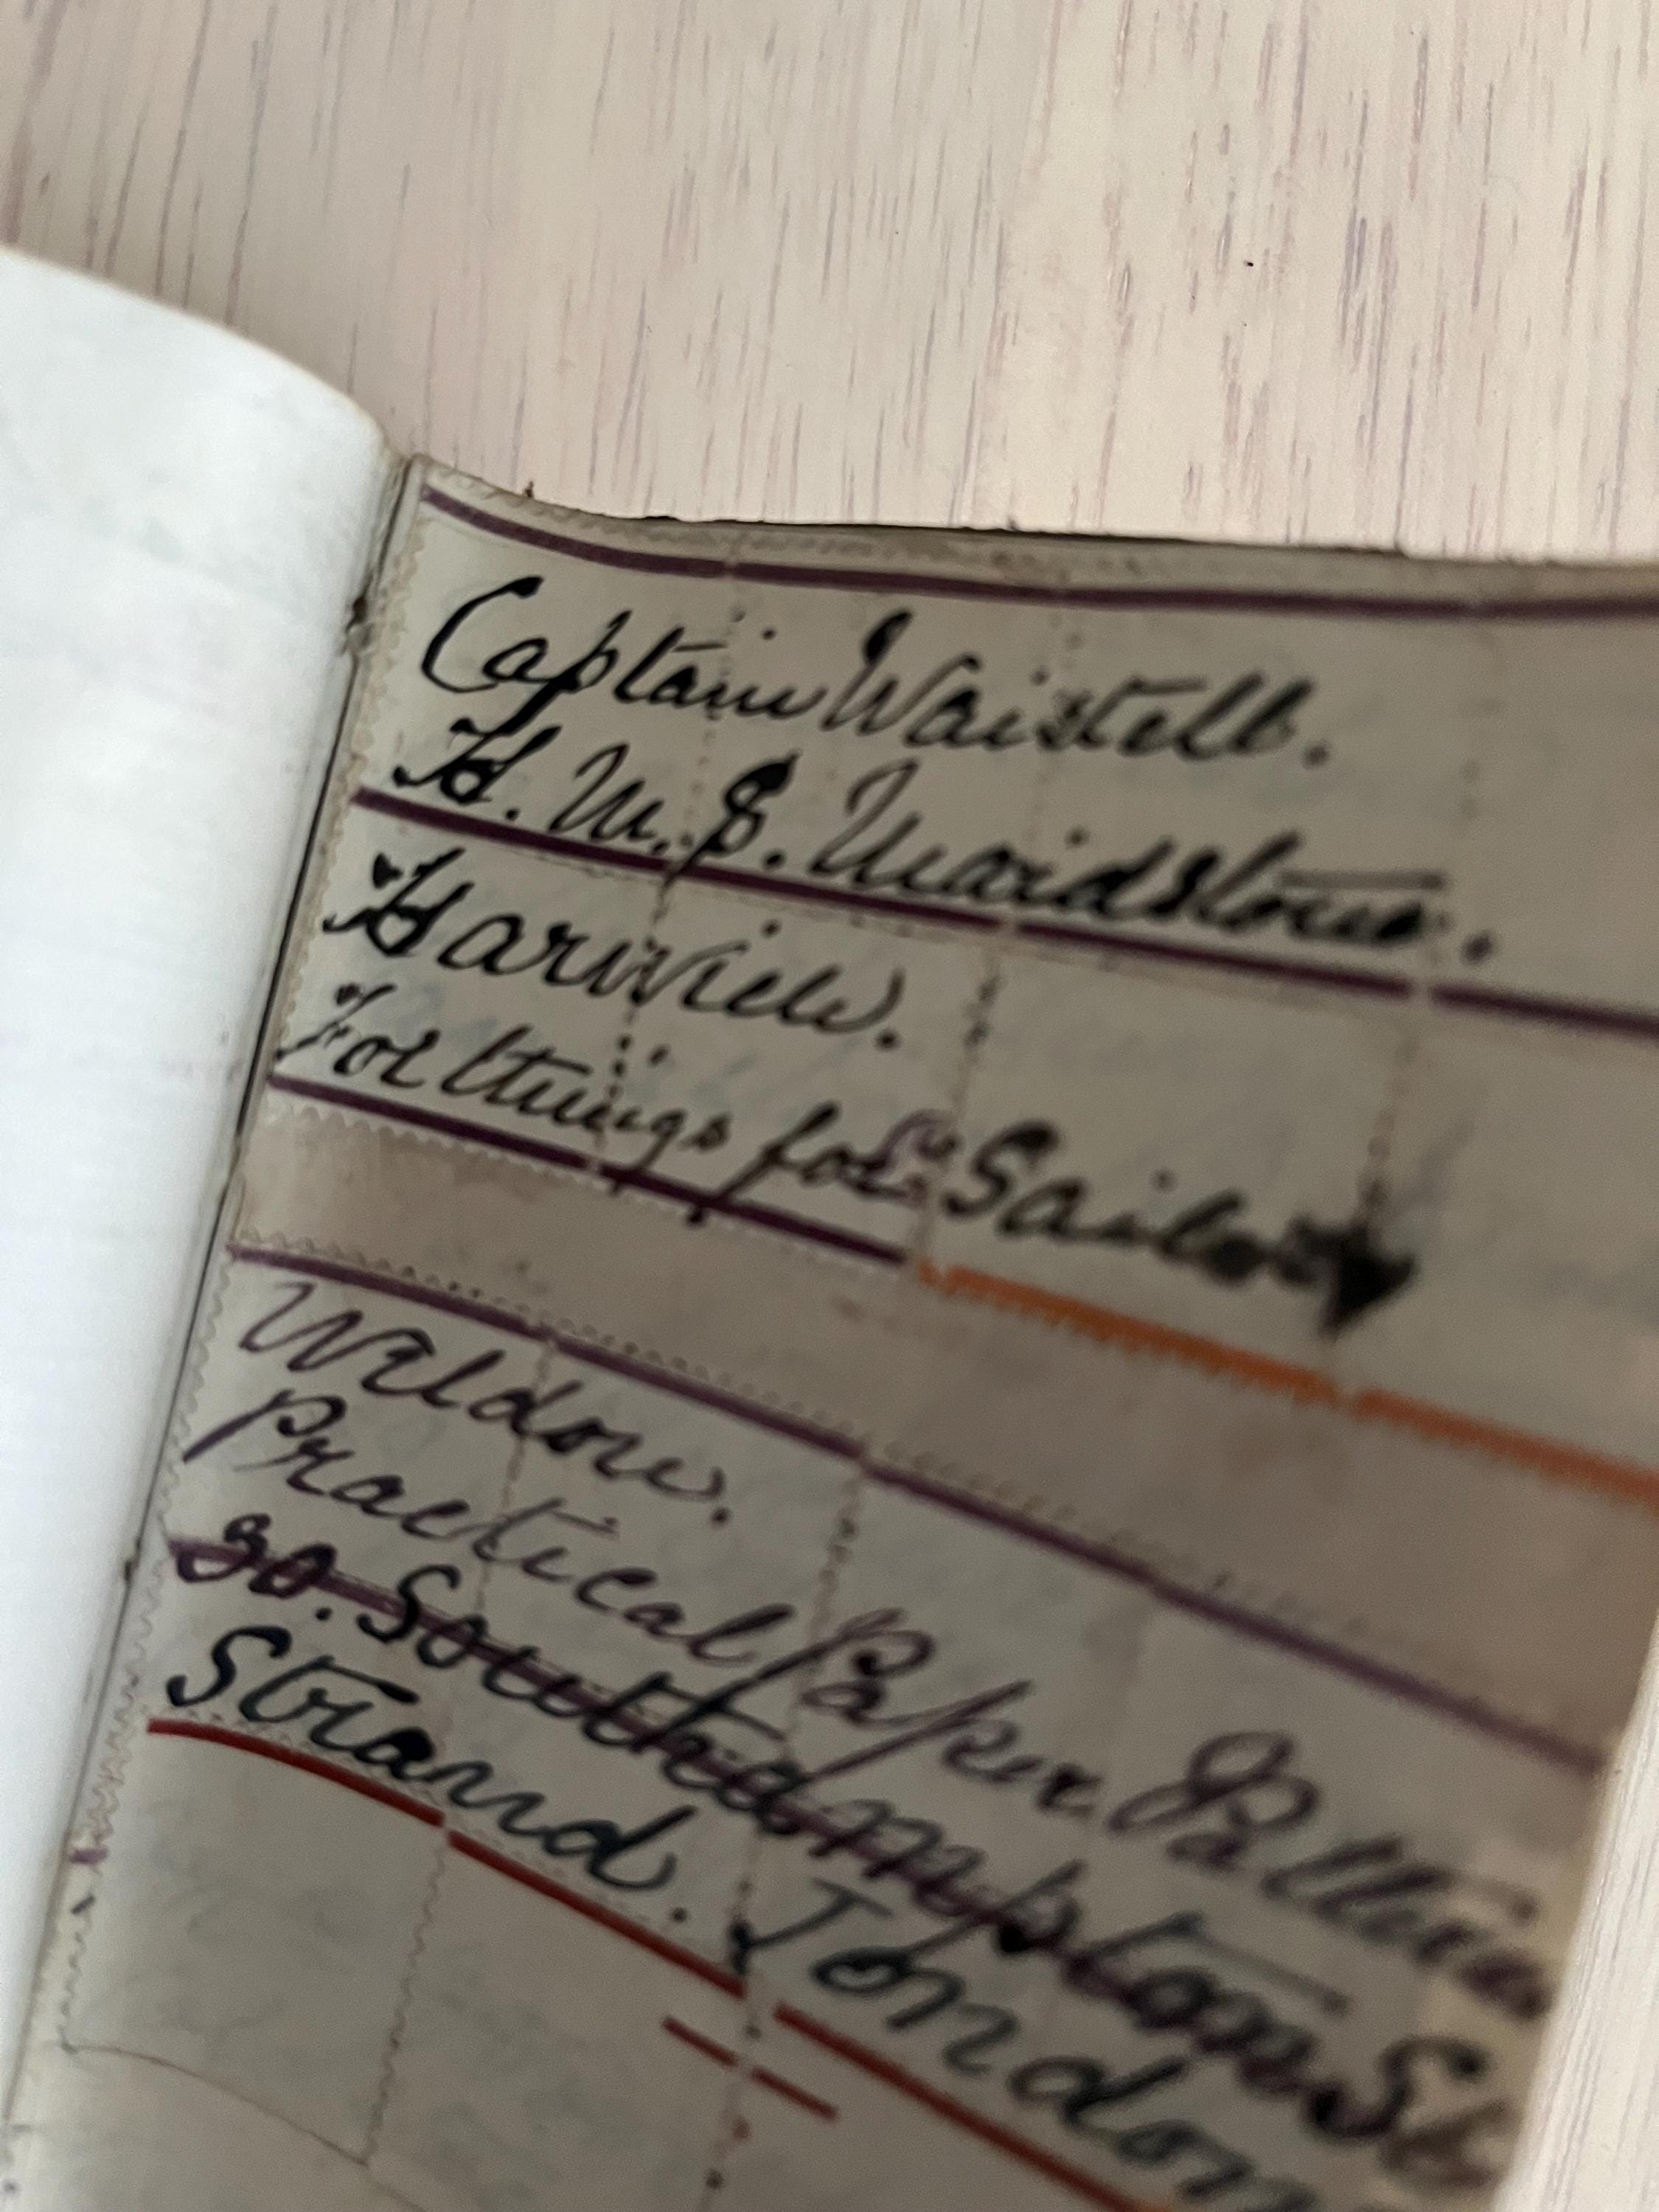 Captain Waistell.
H.M.S. Maidstone.
Harwich.
For things for Sailors
Weldon.
Practical Paper Patterns
30. Southampton St
Strand. London